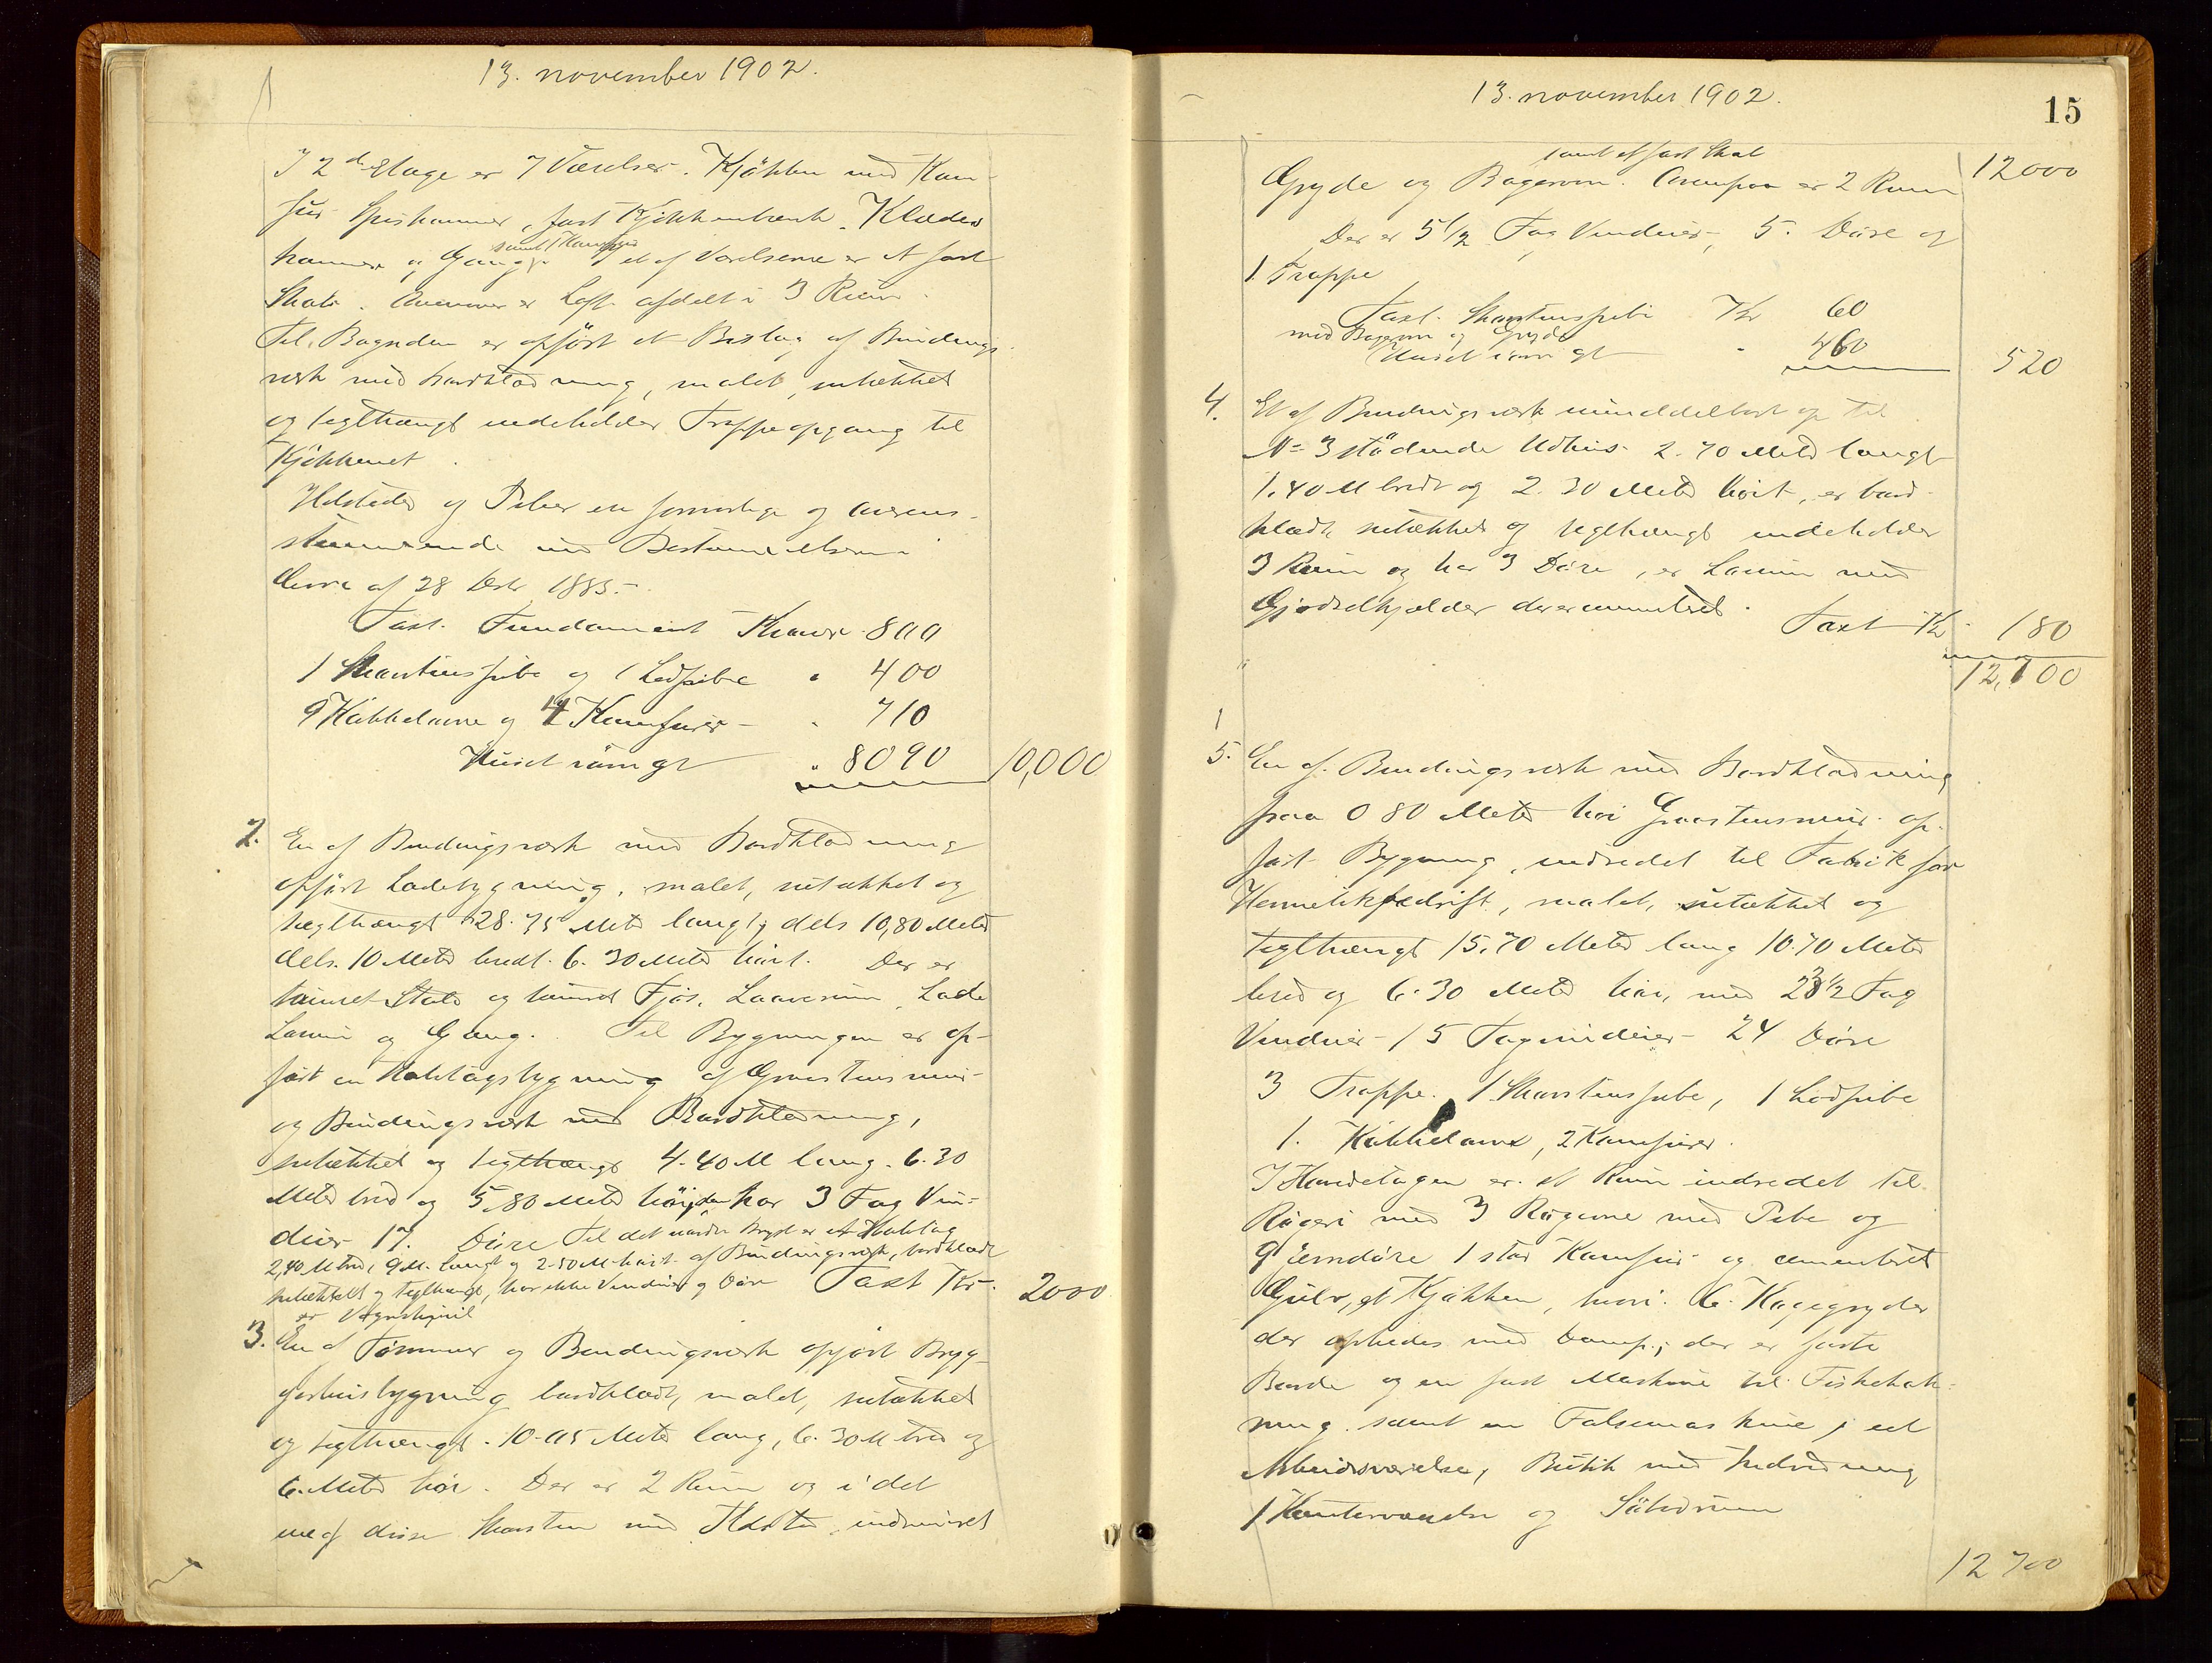 13. november 1902.
I 2den Etage er 7 Værelser. Kjøkken med Kom-
fur Spiskammer, fast Kjøkkenbænk. Klædes
samt 1 Komfur
kammer og Gang. I et af Værelserne er et fast
Skab. Ovenover er Loft afdelt i 3 Rum.
Til Bagsiden er opført et Bislag af Bindings-
værk med bordklædning, malet, sutækket
og teglhængt indeholder Trappeopgang til
Kjøkkenet.
Ildsteder og Piber ere forsvarlige og overens-
stemmende med Bestemmelserne i
Lov af 28 Dcbr 1883.
Taxt. Fundament Kroner 800
1 Skorstenspibe og 1 Lodpibe " 400
9 Kakkelovne og 4 Komfurer " 710
Huset iøvrigt " 8090 10,000
2. En af Bindingsværk med Bordklædning
opført Ladebygning, malet, sutækket og
teglhængt 28.75 Meter langt, dels 10,80 Meter
dels 10 Meter bredt. 6.30 Meter høit. Der er
tømret Stald og tømret Fjøs, Laaverum, Lade
Lorum og Gang. Til Bygningen er op-
ført en Halvtagsbygning af Graastensmur
og Bindingsværk med Bordklædning,
sutækket og teglhængt 4.40 M lang. 6.30
Meter bred og 5,80 Meter høi, den har 3 Fag Vin-
duer 17. Døre Til det nordre Bryst er et Halvtag
2,40 M bred, 9 M. langt og 2.50 M høit af Bindingsværk, bordklædt
sutækket og teglhængt, har ikke Vinduer og Døre Taxt Kr. 2000
er Vognskjul
3. En af Tømmer og Bindingsværk opført Bryg-
gerhusbygning bordklædt, malet, sutækket
og teglhængt. 10.05 Meter lang, 6.30 M bred og
6. Meter høi. Der er 2 Rum og i det
ene af disse Skorsten med Ildsted, indmuret
13. november 1902.
15
samt et fast Skab 12000
Gryde og Bagerovn. Ovenpaa er 2 Rum
Der er 5 1/2 Fag Vinduer, 5. Døre og
1 Trappe
Taxt. Skorstenspibe Kr 60
med Bagerovn og Gryde
Huset iøvrigt " 460 520
4. Et af Bindingsværk umiddelbart op til
No 3 stødende Udhus 2.70 Meter langt
1.40 M bredt og 2.30 Meter høit, er bord-
klædt, sutækket og teglhængt indeholder
3 Rum og har 3 Døre, er Lorum med
Gjødselkjælder derunder.
Taxt Kr 180
12,700
5. En af Bindingsværk med Bordklædning
paa 0 80 Meter høi Graastensmur op-
ført Bygning, indredet til Fabrik for
Hermetikbedrift, malet, sutækket og
teglhængt 15.70 Meter lang 10.70 Meter
bred og 6.30 Meter høi, med 23 1/2 Fag
Vinduer 15 Tagvinduer 24 Døre
3 Trappe. 1 Skorstenspibe, 1 Lodpibe
1. Kakkelovn, 2 Komfurer.
I Hovedetagen er et Rum indredet til
Røgeri med 3 Røgovne med Pibe og
9 Jerndøre 1 stor Komfur og cementeret
Gulv, et Kjøkken, hvori 6. Kogegryder
der ophedes med Damp; der er faste
Borde og en fast Maskine til Fiskehak-
ning samt en Falsemaskine; et
Arbeidsværelse, Butik med Indredning
1 Kontorværelse og
12 700